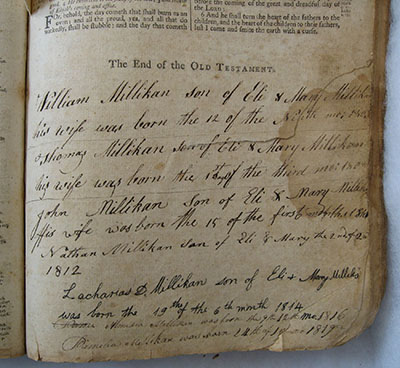 of Elijah's coming and office.
FOr, behold, the day cometh that shall burn as an
oven; and all the proud, yea, and all that do
wickedly, shall be stubble: and the day that cometh
before the coming of the great and dreadful day of
the LORD:
6. And he shall turn the heart of the fathers to the
children, and the heart of the children to their fathers,
lest I come and smite the earth with a curse.
The End of the OLD TESTAMENT.
William Millikan son of Eli & Mary Millikan
his wife was born the 12 of the
Thomas Millikan son of Eli & Mary Millikan
his wife was born the of the third mo:
John Millikan son of Eli & Mary Millikan
His wife was born the 15 of the first
Nathan Millikan son of Eli & Mary the 2nd of
1812
Zacharias D. Millikan son of Eli & Mary Millikan
was born the 19th of the 6th month 1814
Millikan was born the 12th mo 1816
was born 14th of 1819